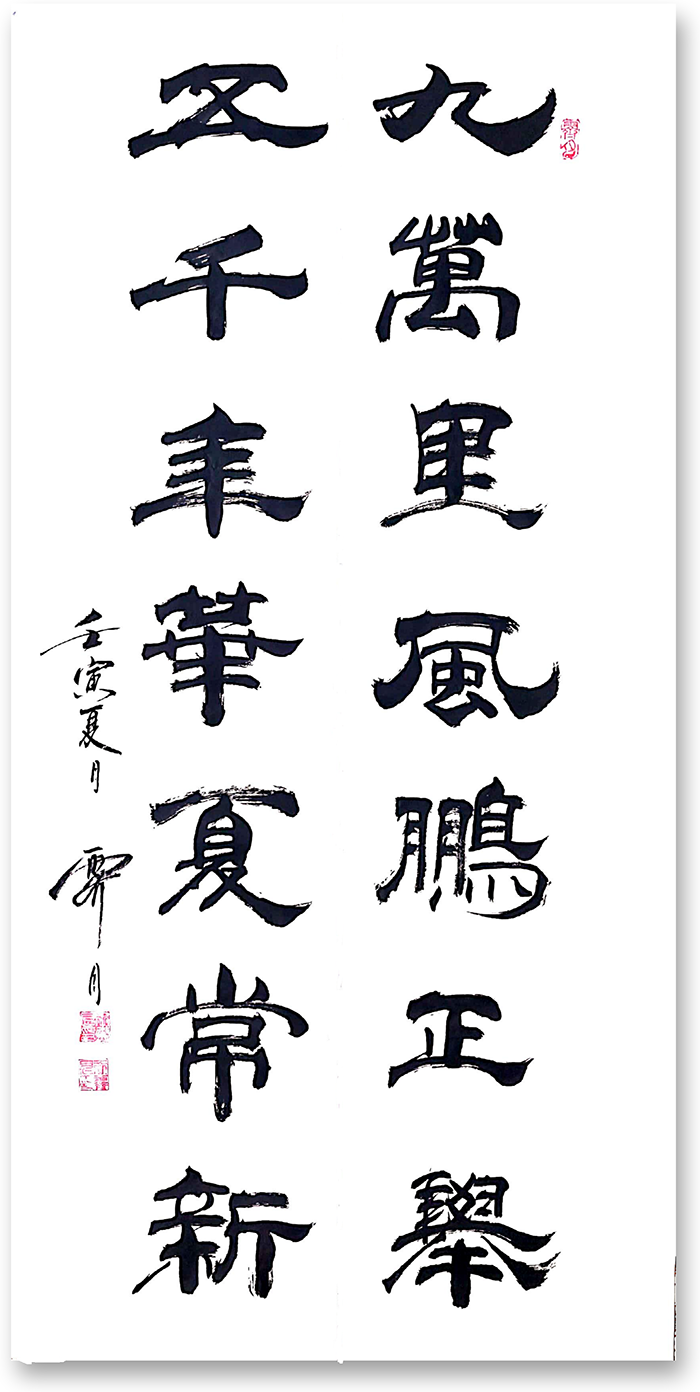 九萬里風鵬正舉
五千年華夏常新
壬寅夏月 霽月